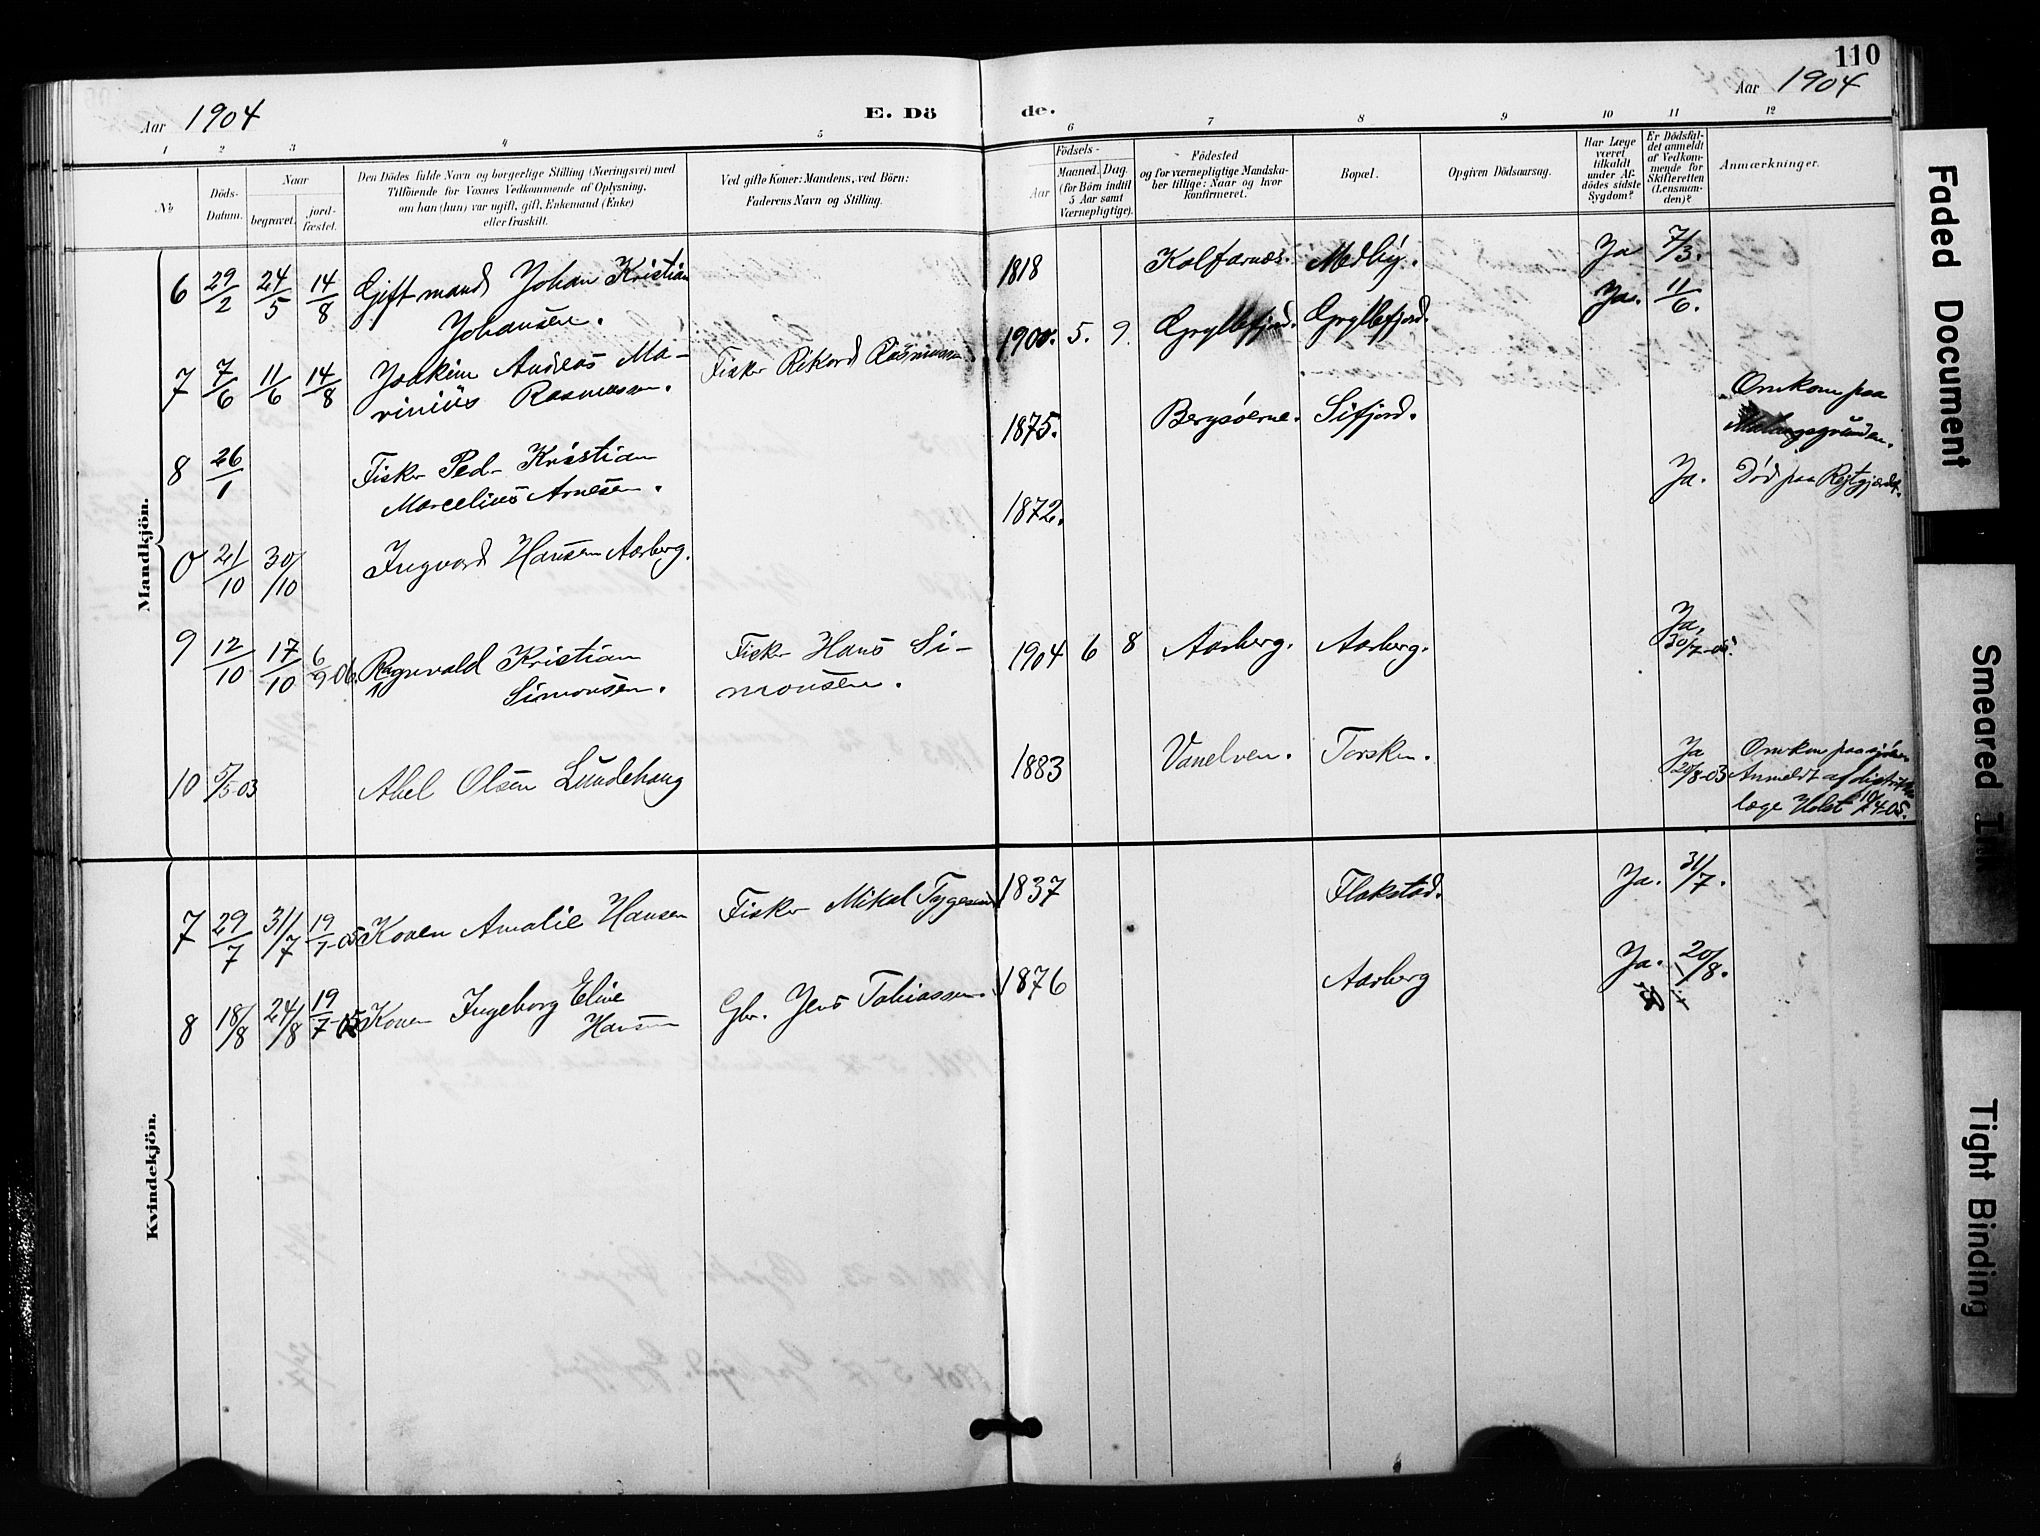 110
Aar 1904
E. Dö
de.
Aar 1904
1 2 3 4 5 6 7 8 9 10 11 12
№
Döds-
Datum.
Naar
begravet.
jord-
fæstet.
Den Dödes fulde Navn og borgerlige Stilling (Næringsvei) med
Tilföiende for Voxnes Vedkommende af Oplysning,
om han (hun) var ugift, gift, Enkemand (Enke)
eller fraskilt.
Ved gifte Koner: Mandens, ved Börn:
Faderens Navn og Stilling.
Födsels-
Aar
Maaned.
Dag.
(for Börn indtil
5 Aar samt
Værnepligtige).
Födested
og for værnepligtige Mandska-
ber tillige: Naar og hvor
konfirmeret.
Bopæl.
Opgiven Dödsaarsag.
Har Læge
været
tilkaldt
under Af-
dödes sidste
Sygdom?
Er Dödsfal-
det anmeldt
af Vedkom-
mende for
Skifteretten
(Lensman-
den)?
Anmærkninger.
Mandkjön.
6 29/2 24/5 14/8 Gift mand Johan Kristian
Johansen.
1818 Kalfarnæs. Medby. Ja 7/3.
7 7/6 11/6 14/8 Joakim Andeas Ma-
rinius Rasmussen.
Fisker Rikard Rasmussen
1900. 5. 9. Gryllefjord. Gryllefjord. Ja. 11/6.
8 26/1 Fisker Ped- Kristian
Marcelius Arnesen.
1875. Bergsöerne. Sifjord. Omkom paa
Malangsgrunden.
0 21/10 30/10 Ingvard Hansen Aarberg.
1872. Ja. Död paa
9 12/10 17/10 6/9 06 Ragnvald Kristian
Simonsen.
Fisker Hans Si-
monsen.
1904 6 8 Aarberg. Aarberg. Ja.
30/7-05.
10 5/5-03 Abel Olsen Lundehaug
1883 Vanelven. Torsken. Ja
20/8-03
Omkom paa sjöen
Anmeldt af distrikts
læge Holst 10/4-05.
Kvindekjön.
7 29/7 31/7 19/7-05 Konen Amalie Hansen
Fisker Mikal Tygesen
1837 Flakstad. Ja. 31/7.
8 18/8 24/8 19/7-05 Konen Ingeborg Eline
Hansen
Gbr. Jens Tobiassen.
1876 Aarberg Ja. 20/8.
Faded Document
Smeared Ink
Tight Binding